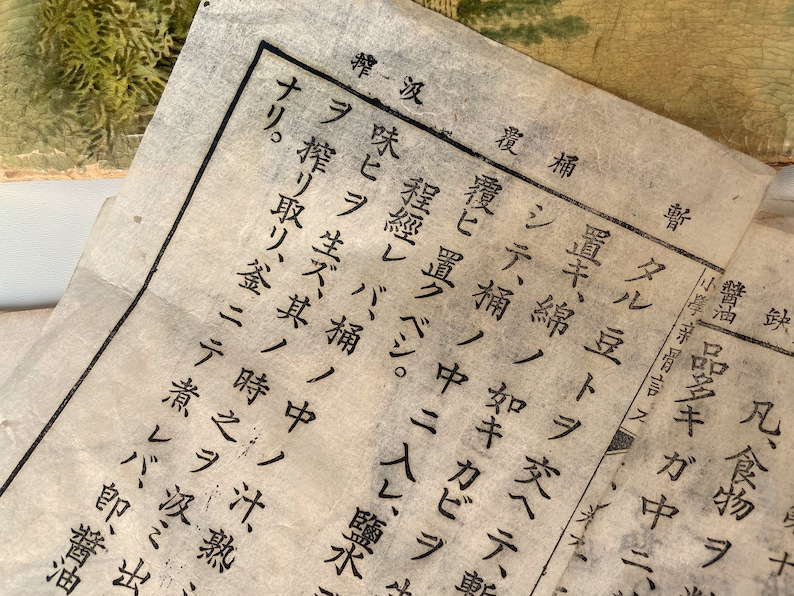 缺
醬油
第十
凡、食物ヲ
品多キガ中ニ、
小學
暫
桶
覆
汲
搾
タル豆トヲ交ヘテ、暫
置キ、綿ノ如キカビヲ生
シテ、桶ノ中ニ入レ、鹽水
覆ヒ置クベシ。
程經レバ、桶ノ中ノ汁、熟
味ヒヲ生ズ、其ノ時之ヲ汲ミ出
ヲ搾リ取リ、釜ニテ煮レバ、卽、醬油
ナリ。